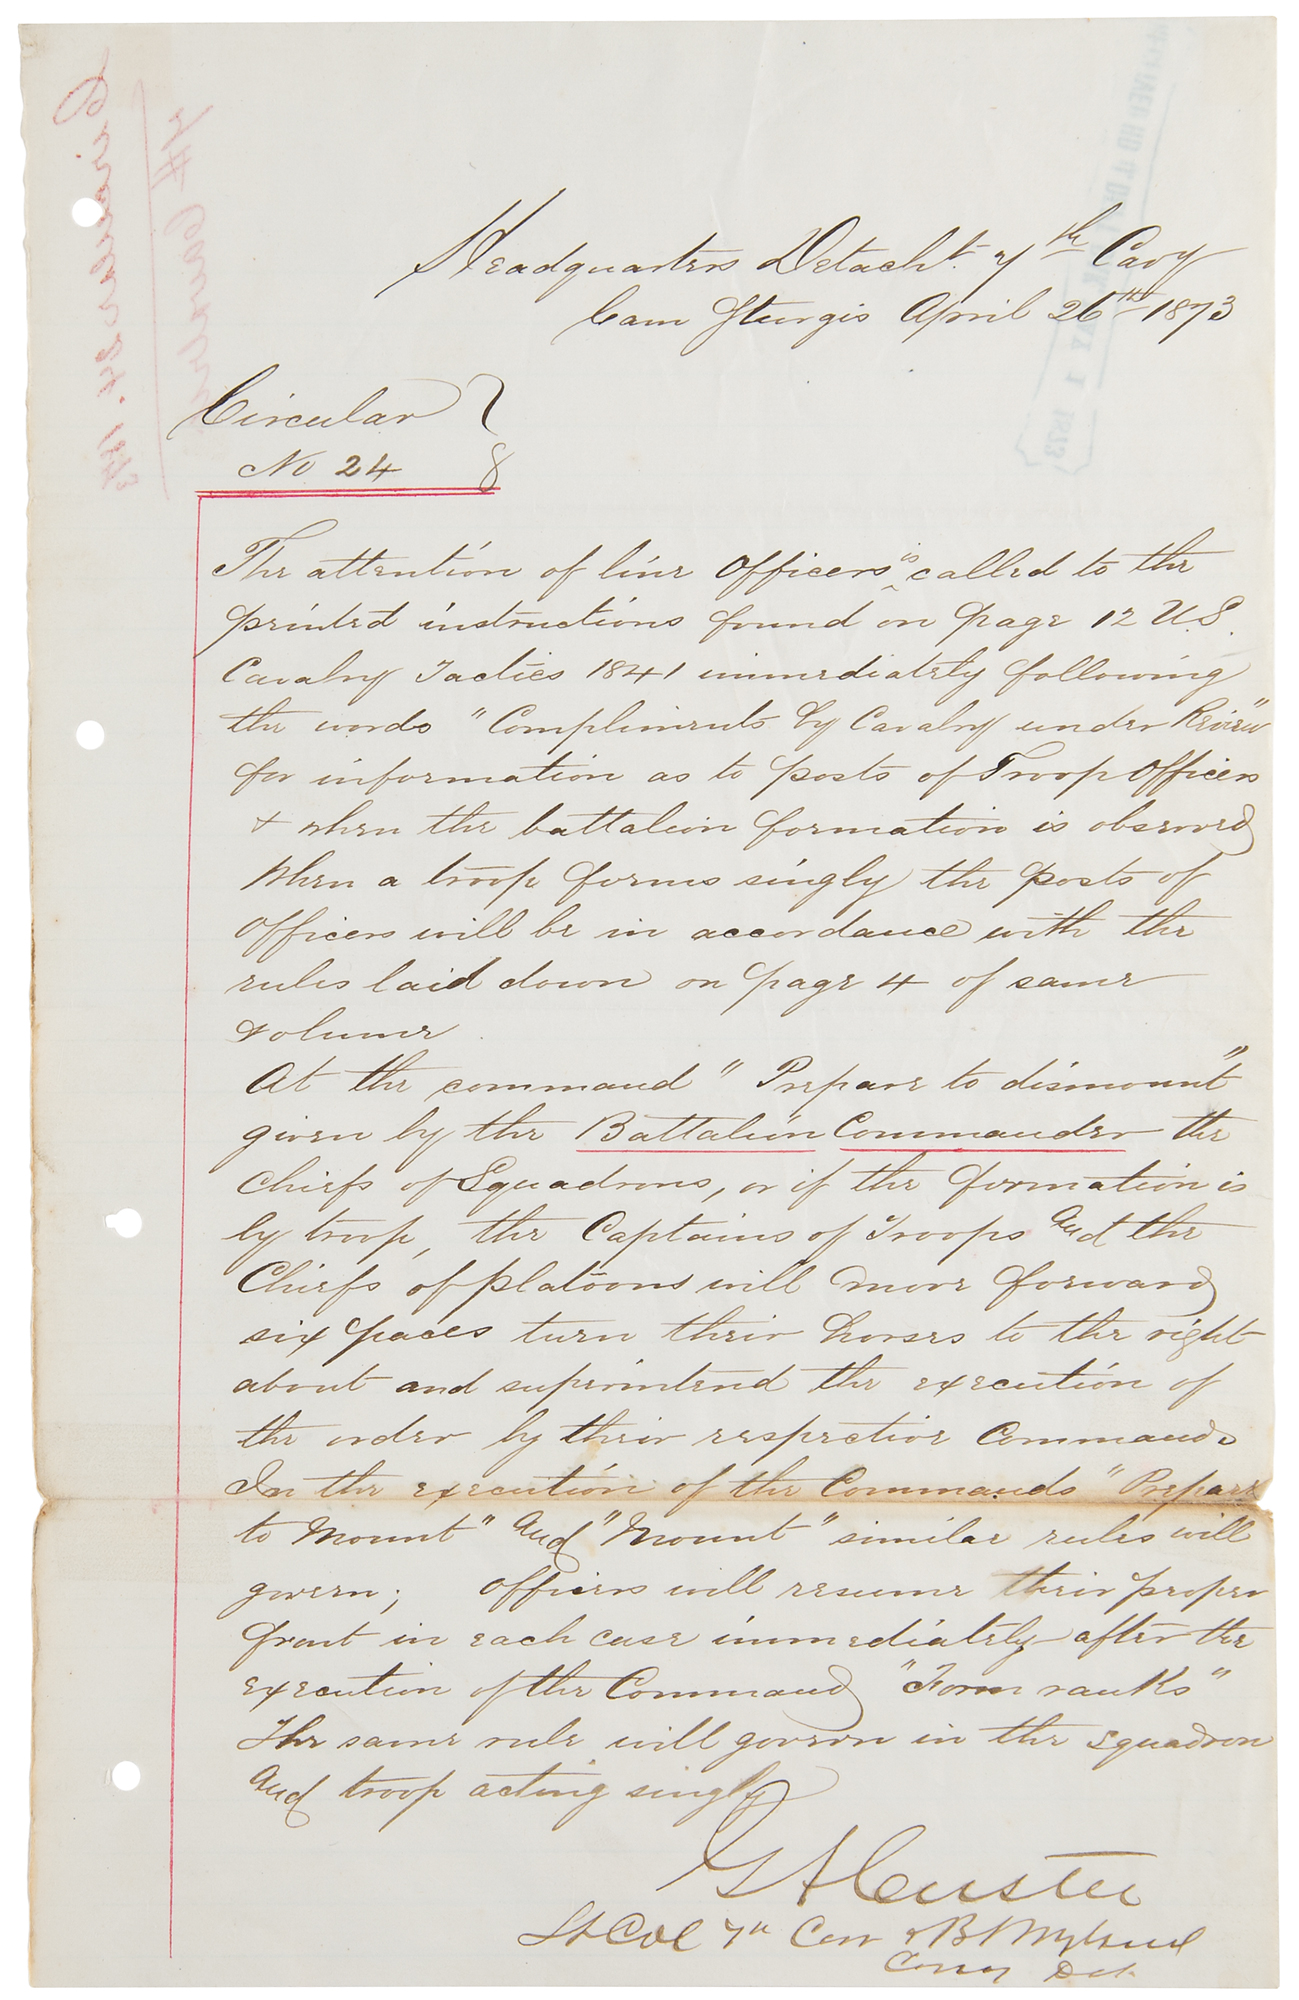 Headquarters Detacht. 7th Cavy
Cam Sturgis April 26th 1873
Circular
No 24
The attention of line Officers is called to the
printed instructions found on page 12 U.S.
Cavalry Tactics 1841 immediately following
the words "Compliments by Cavalry under Review"
for information as to posts of Troop Officers
& when the battalion formation is observed
When a troop forms singly the posts of
Officers will be in accordance with the
rules laid down on page 4 of same
volume
At the command "Prepare to dismount"
given by the Battalion Commander the
Chiefs of Squadrons, or if the formation is
by troop, the Captains of Troops and the
Chiefs of platoons will move forward
six paces turn their horses to the right
about and superintend the execution of
the order by their respective Commands
In the execution of the Commands "Prepare
to Mount" and "Mount" similar rules will
govern; Officers will resume their proper
front in each case immediately after the
execution of the Command "Form ranks"
The same rule will govern in the Squadron
and troop acting singly
GA Custer
Lt Col 7th Cav
Circular No. 24
7th Cavalry
MAY 1 1873